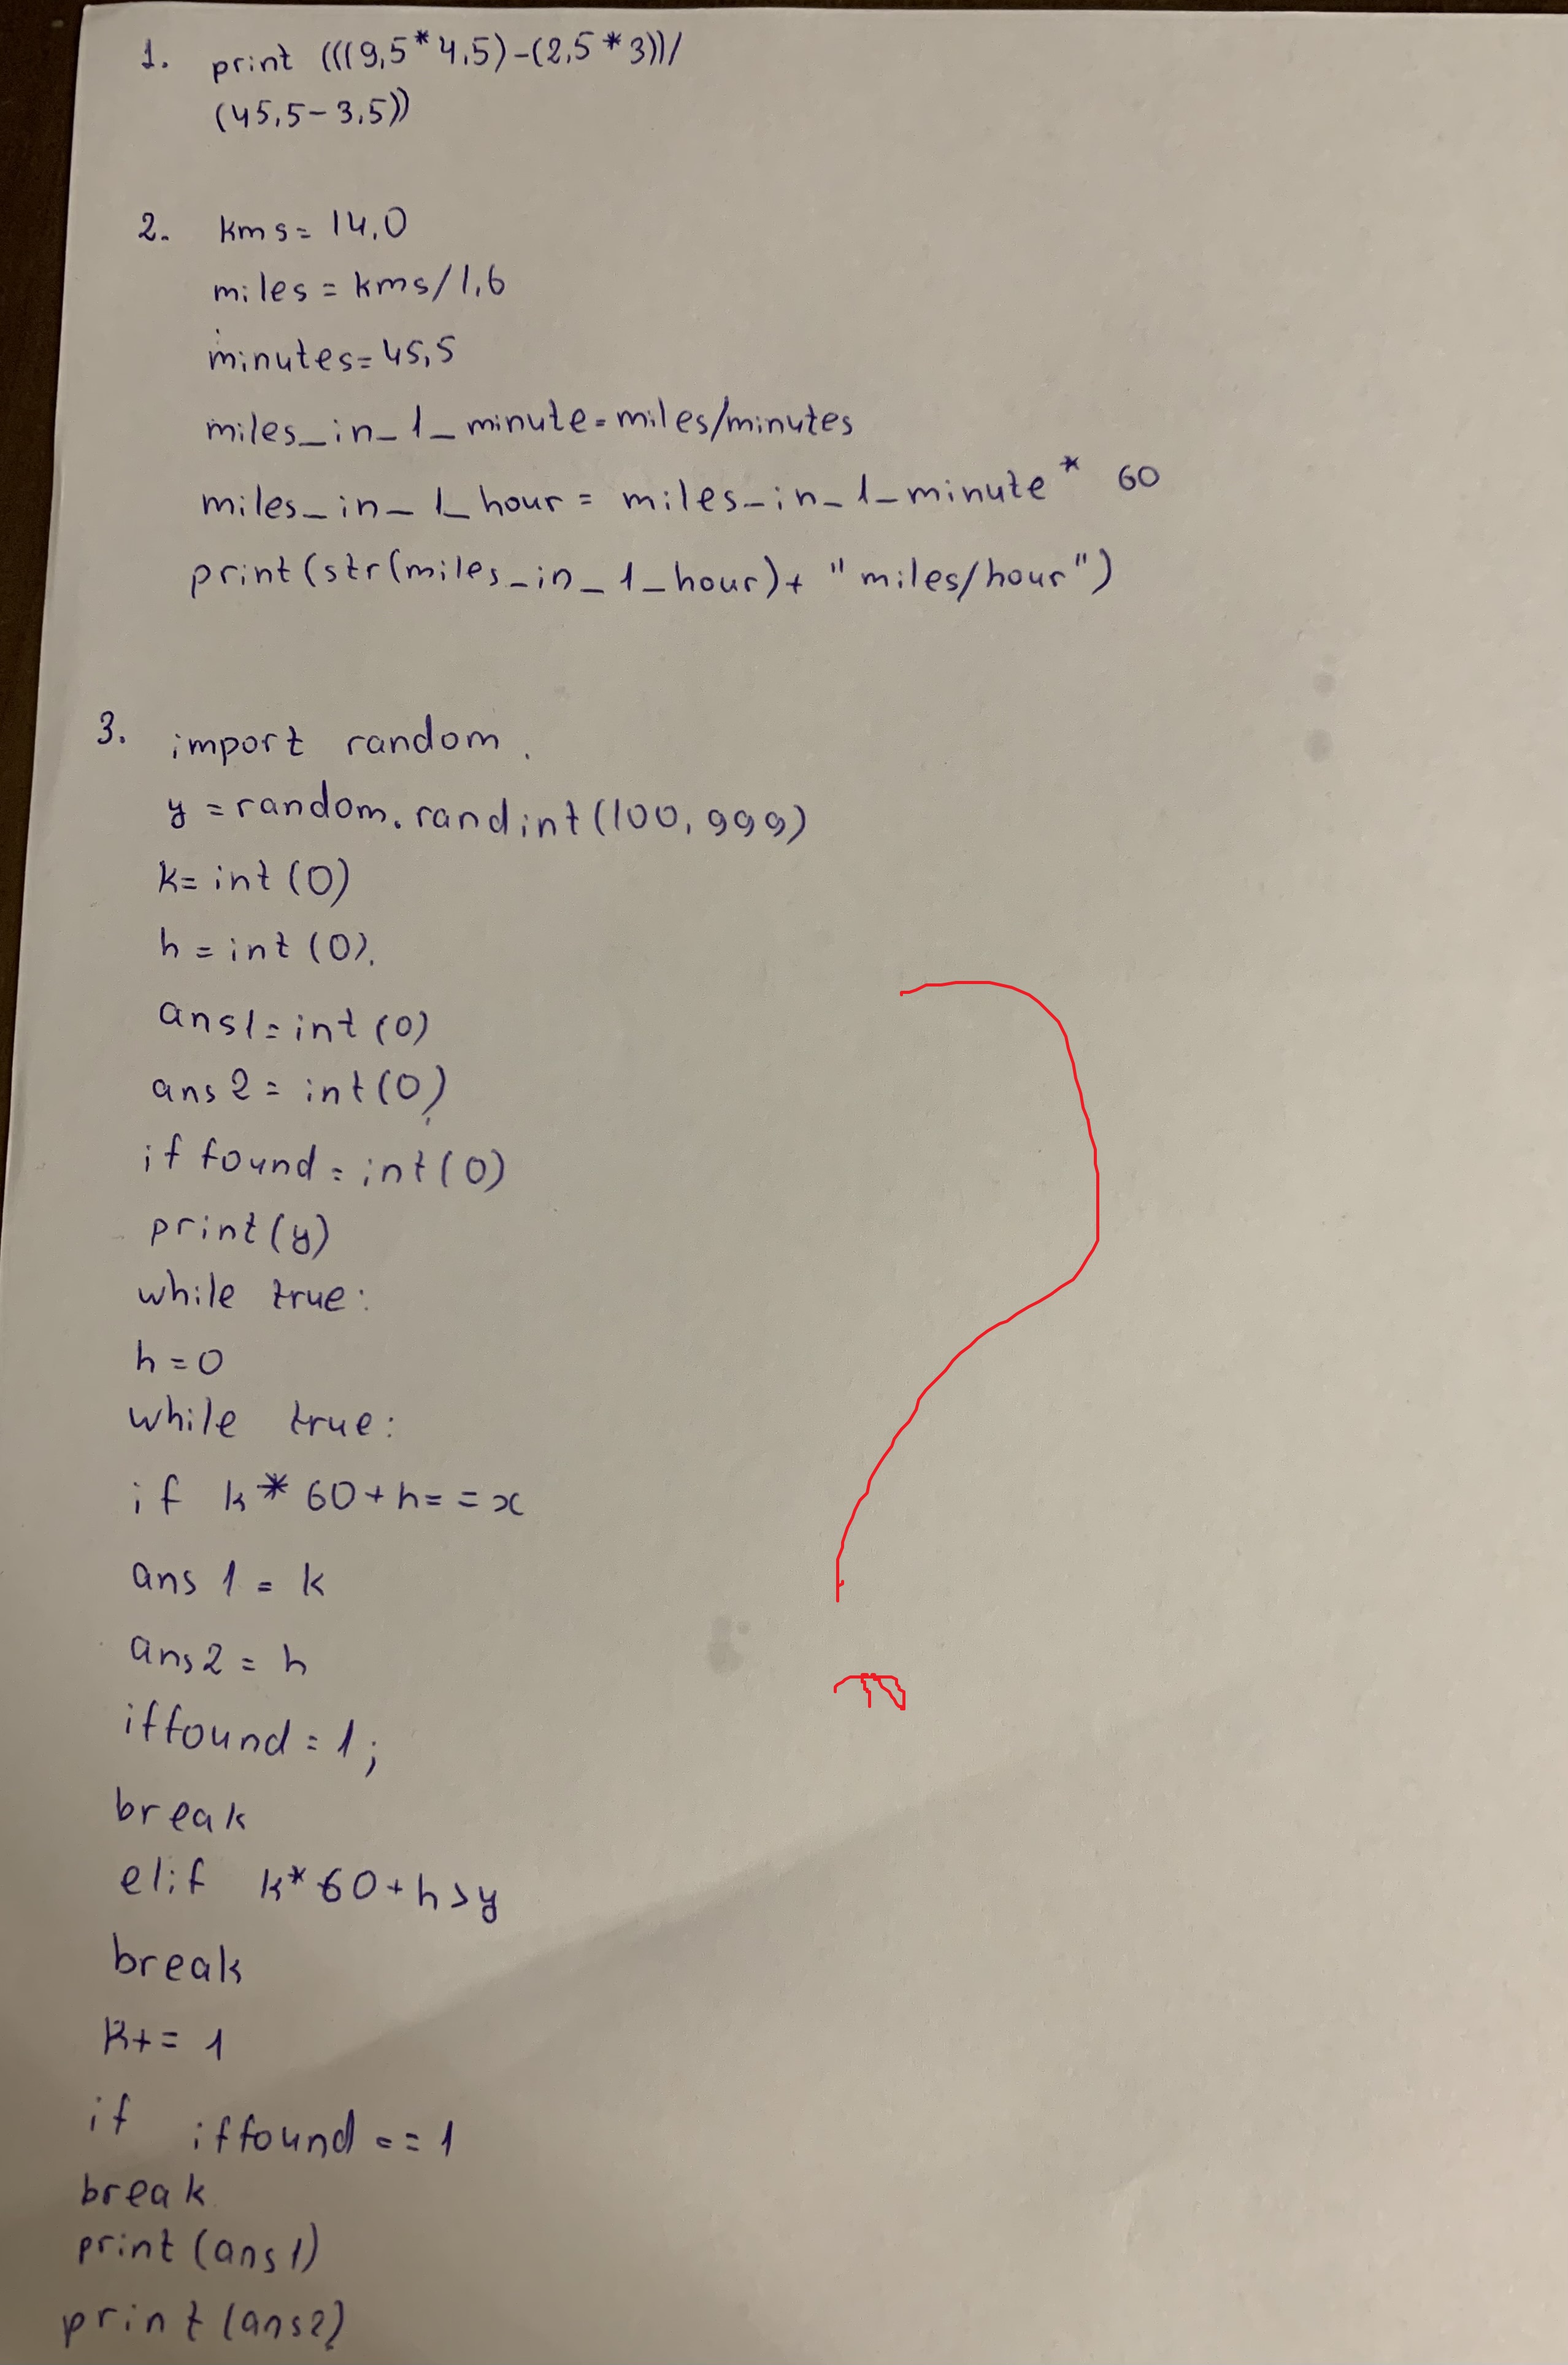 1. print (((9,5*4,5)-(2,5*3))/
(45,5-3,5))
2. kms=14,0
miles = kms/1,6
minutes=45,5
miles_in_1_minute=miles/minutes
miles_in_1_hour = miles_in_1_minute* 60
print(str(miles_in_1_hour)+ "miles/hour")
3. import random.
y =random.randint(100, 999)
k= int (0)
h = int (0).
ans1=int (0)
ans2 = int(0)
if found = int(0)
print(y)
while true:
h=0
while true:
if k* 60+h= =x
ans 1 = k
ans2 = h
iffound = 1;
break
elif k*60+h>y
break
k+= 1
if iffound ==1
break
print (ans1)
print (ans2)